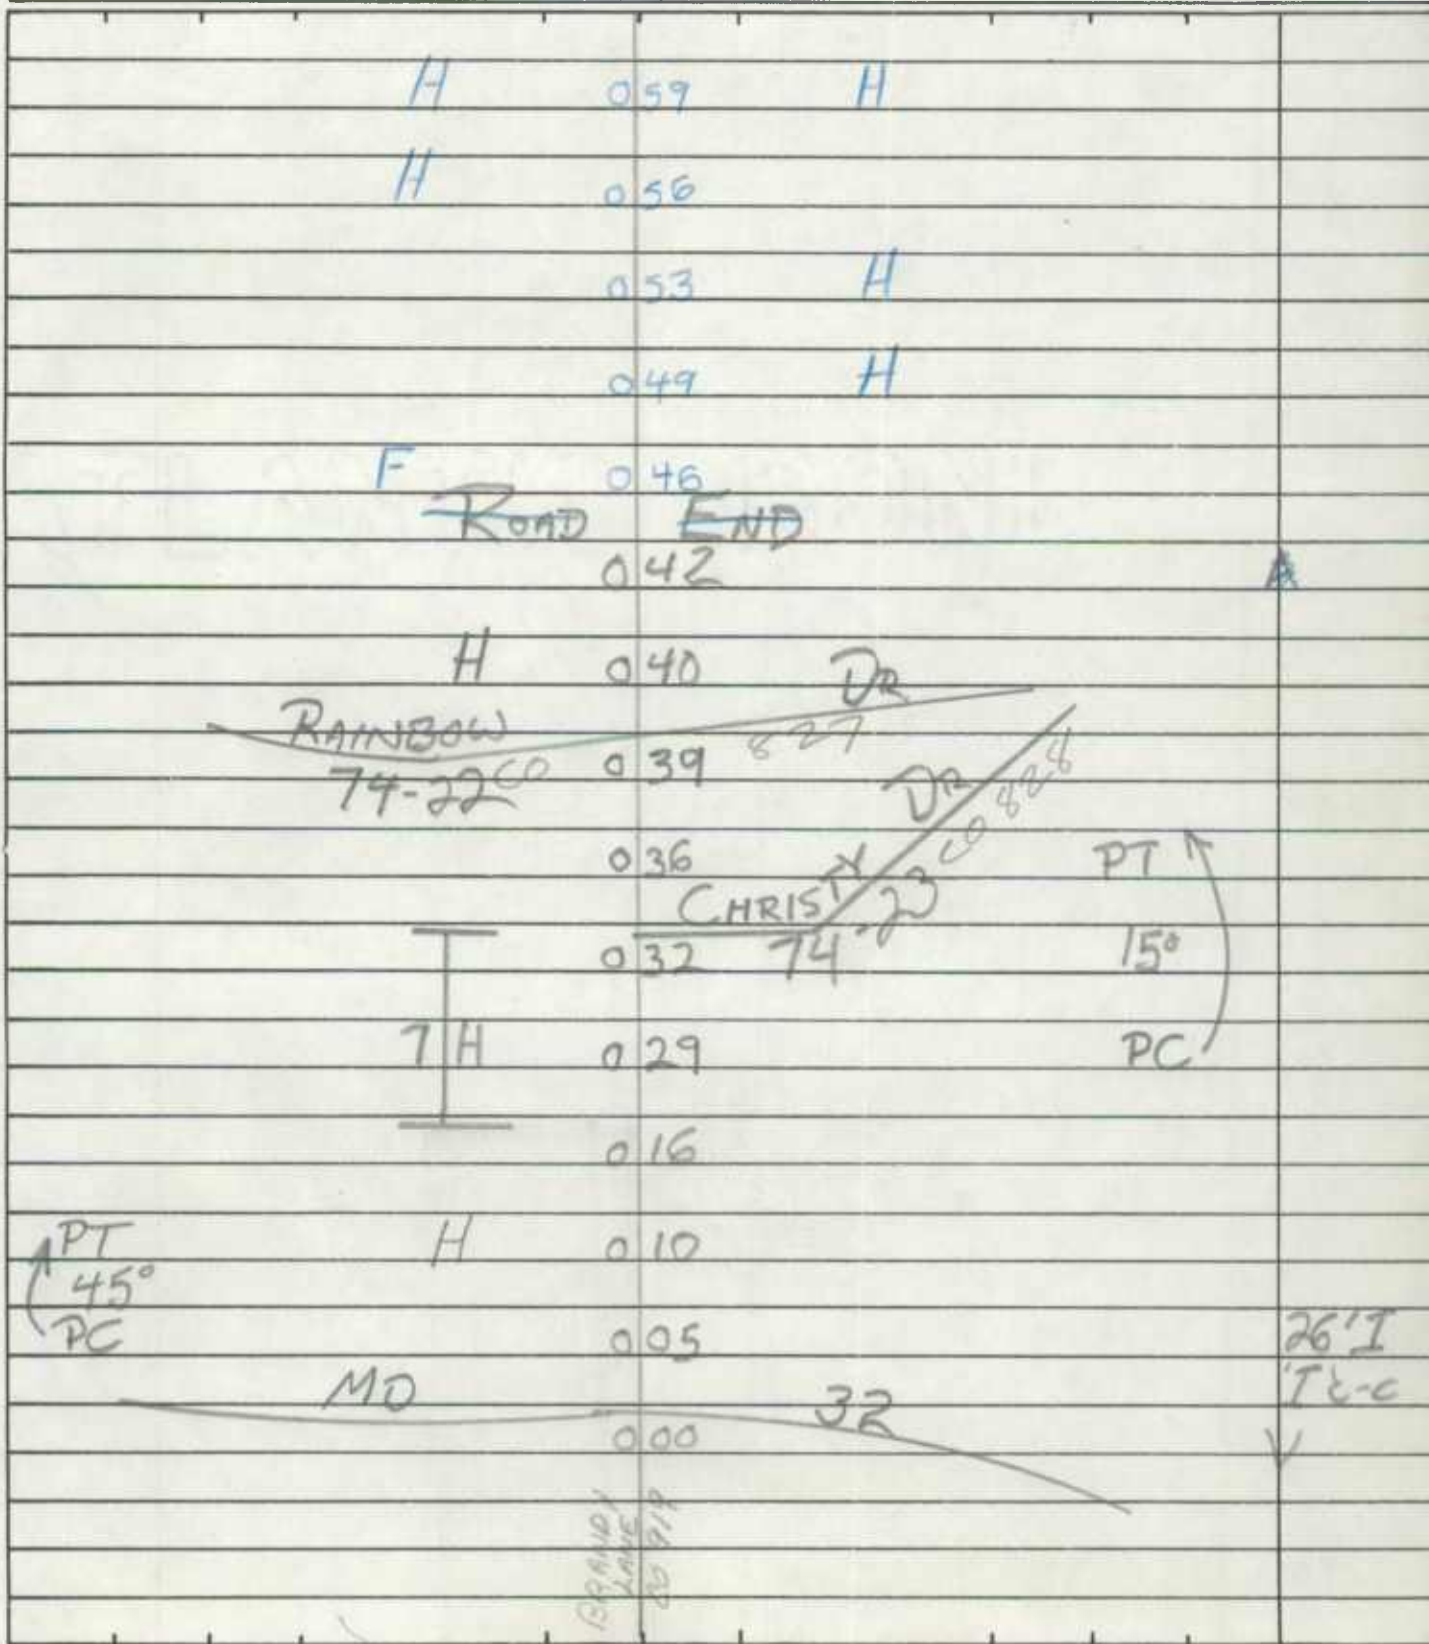 H 0 59 H
H 0 56
0 53 H
0 49 H
F 0 46
ROAD END
0 42
H 0 40 DR
RAINBOW 827
74-22 CO 0 39
DR
0 36 PT
CHRISTY CO 828
0 32 74-23 15°
7 H 0 29 PC
0 16
PT H 0 10
45°
PC 0 05 26' I
MD 32
0 00
BRANDY
LANE
CO 919